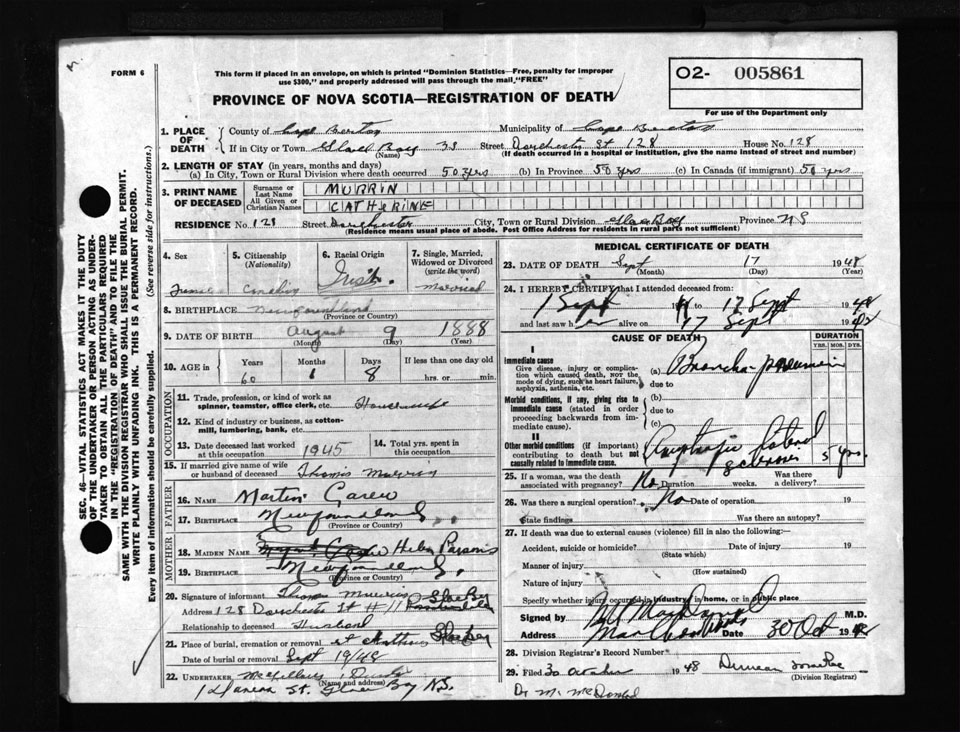 FORM 6
This form if placed in an envelope, on which is printed "Dominion Statistics—Free, penalty for improper
use $300," and properly addressed will pass through the mail, "FREE"
O2- 005861
For use of the Department only
PROVINCE OF NOVA SCOTIA—REGISTRATION OF DEATH
SEC. 46—VITAL STATISTICS ACT MAKES IT THE DUTY
OF THE UNDERTAKER OR PERSON ACTING AS UNDER-
TAKER TO OBTAIN ALL THE PARTICULARS REQUIRED
IN THE "REGISTRATION OF DEATH" AND TO FILE THE
SAME WITH THE DIVISION REGISTRAR WHO SHALL ISSUE THE BURIAL PERMIT.
WRITE PLAINLY WITH UNFADING INK. THIS IS A PERMANENT RECORD.
Every item of information should be carefully supplied. (See reverse side for instructions.)
1. PLACE OF DEATH County of Cape Breton Municipality of Cape Breton
If in City or Town Glace Bay 33 Street Dorchester St 128 House No. 128
(Name) (If death occurred in a hospital or institution, give the name instead of street and number)
2. LENGTH OF STAY (in years, months and days)
(a) In City, Town or Rural Division where death occurred 50 yrs (b) In Province 50 yrs (c) In Canada (if immigrant) 50 yrs
3. PRINT NAME OF DECEASED Surname or Last Name MURRIN
All Given or Christian Names CATHERINE
RESIDENCE No. 128 Street Dorchester City, Town or Rural Division Glace Bay Province NS
(Residence means usual place of abode. Post Office Address for residents in rural parts not sufficient)
4. Sex Female
5. Citizenship (Nationality)
6. Racial Origin Irish
7. Single, Married, Widowed or Divorced (write the word) Married
8. BIRTHPLACE Newfoundland
(Province or Country)
9. DATE OF BIRTH August 9 1888
(Month) (Day) (Year)
10. AGE in Years Months Days If less than one day old
60 1 8 hrs. or min.
OCCUPATION
11. Trade, profession, or kind of work as
spinner, teamster, office clerk, etc. Housewife
12. Kind of industry or business, as cotton-
mill, lumbering, bank, etc.
13. Date deceased last worked at this occupation 1945
14. Total yrs. spent in this occupation
15. If married give name of wife or husband of deceased Thomas Murrin
FATHER
16. NAME Martin Carew
17. BIRTHPLACE Newfoundland
(Province or Country)
MOTHER
18. MAIDEN NAME Helen Parsons
19. BIRTHPLACE Newfoundland
(Province or Country)
20. Signature of informant Thomas Murrin Glace Bay
Address 128 Dorchester St
Relationship to deceased Husband
21. Place of burial, cremation or removal Glace Bay
Date of burial or removal Sept 19/48
22. UNDERTAKER
(Name and address)
St. Glace Bay N.S.
MEDICAL CERTIFICATE OF DEATH
23. DATE OF DEATH Sept 17 1948
(Month) (Day) (Year)
24. I HEREBY CERTIFY that I attended deceased from
1 Sept to 17 Sept 1948
and last saw her alive on 17 Sept 1948
CAUSE OF DEATH DURATION
YRS. MOS. DYS.
I
Immediate cause
Give disease, injury or complication which caused death, not the mode of dying, such as heart failure, asphyxia, asthenia, etc.
(a) Broncho-pneumonia
due to
Morbid conditions, if any, giving rise to immediate cause (stated in order proceeding backwards from immediate cause).
(b)
due to
(c)
II
Other morbid conditions (if important) contributing to death but not causally related to immediate cause.
Amyotrophic lateral
sclerosis 5 yrs.
25. If a woman, was the death associated with pregnancy? No Duration weeks. Was there a delivery?
26. Was there a surgical operation? No Date of operation 19
State findings Was there an autopsy?
27. If death was due to external causes (violence) fill in also the following:—
Accident, suicide or homicide? Date of injury 19
(State which)
Manner of injury
(How sustained)
Nature of injury
Specify whether injury occurred in industry, in home, or in public place
Signed by MacDonald M.D.
Address Date 30 Oct 1948
28. Division Registrar's Record Number
29. Filed 30 October 1948 Duncan
(Division Registrar)
Dr M. McDonald